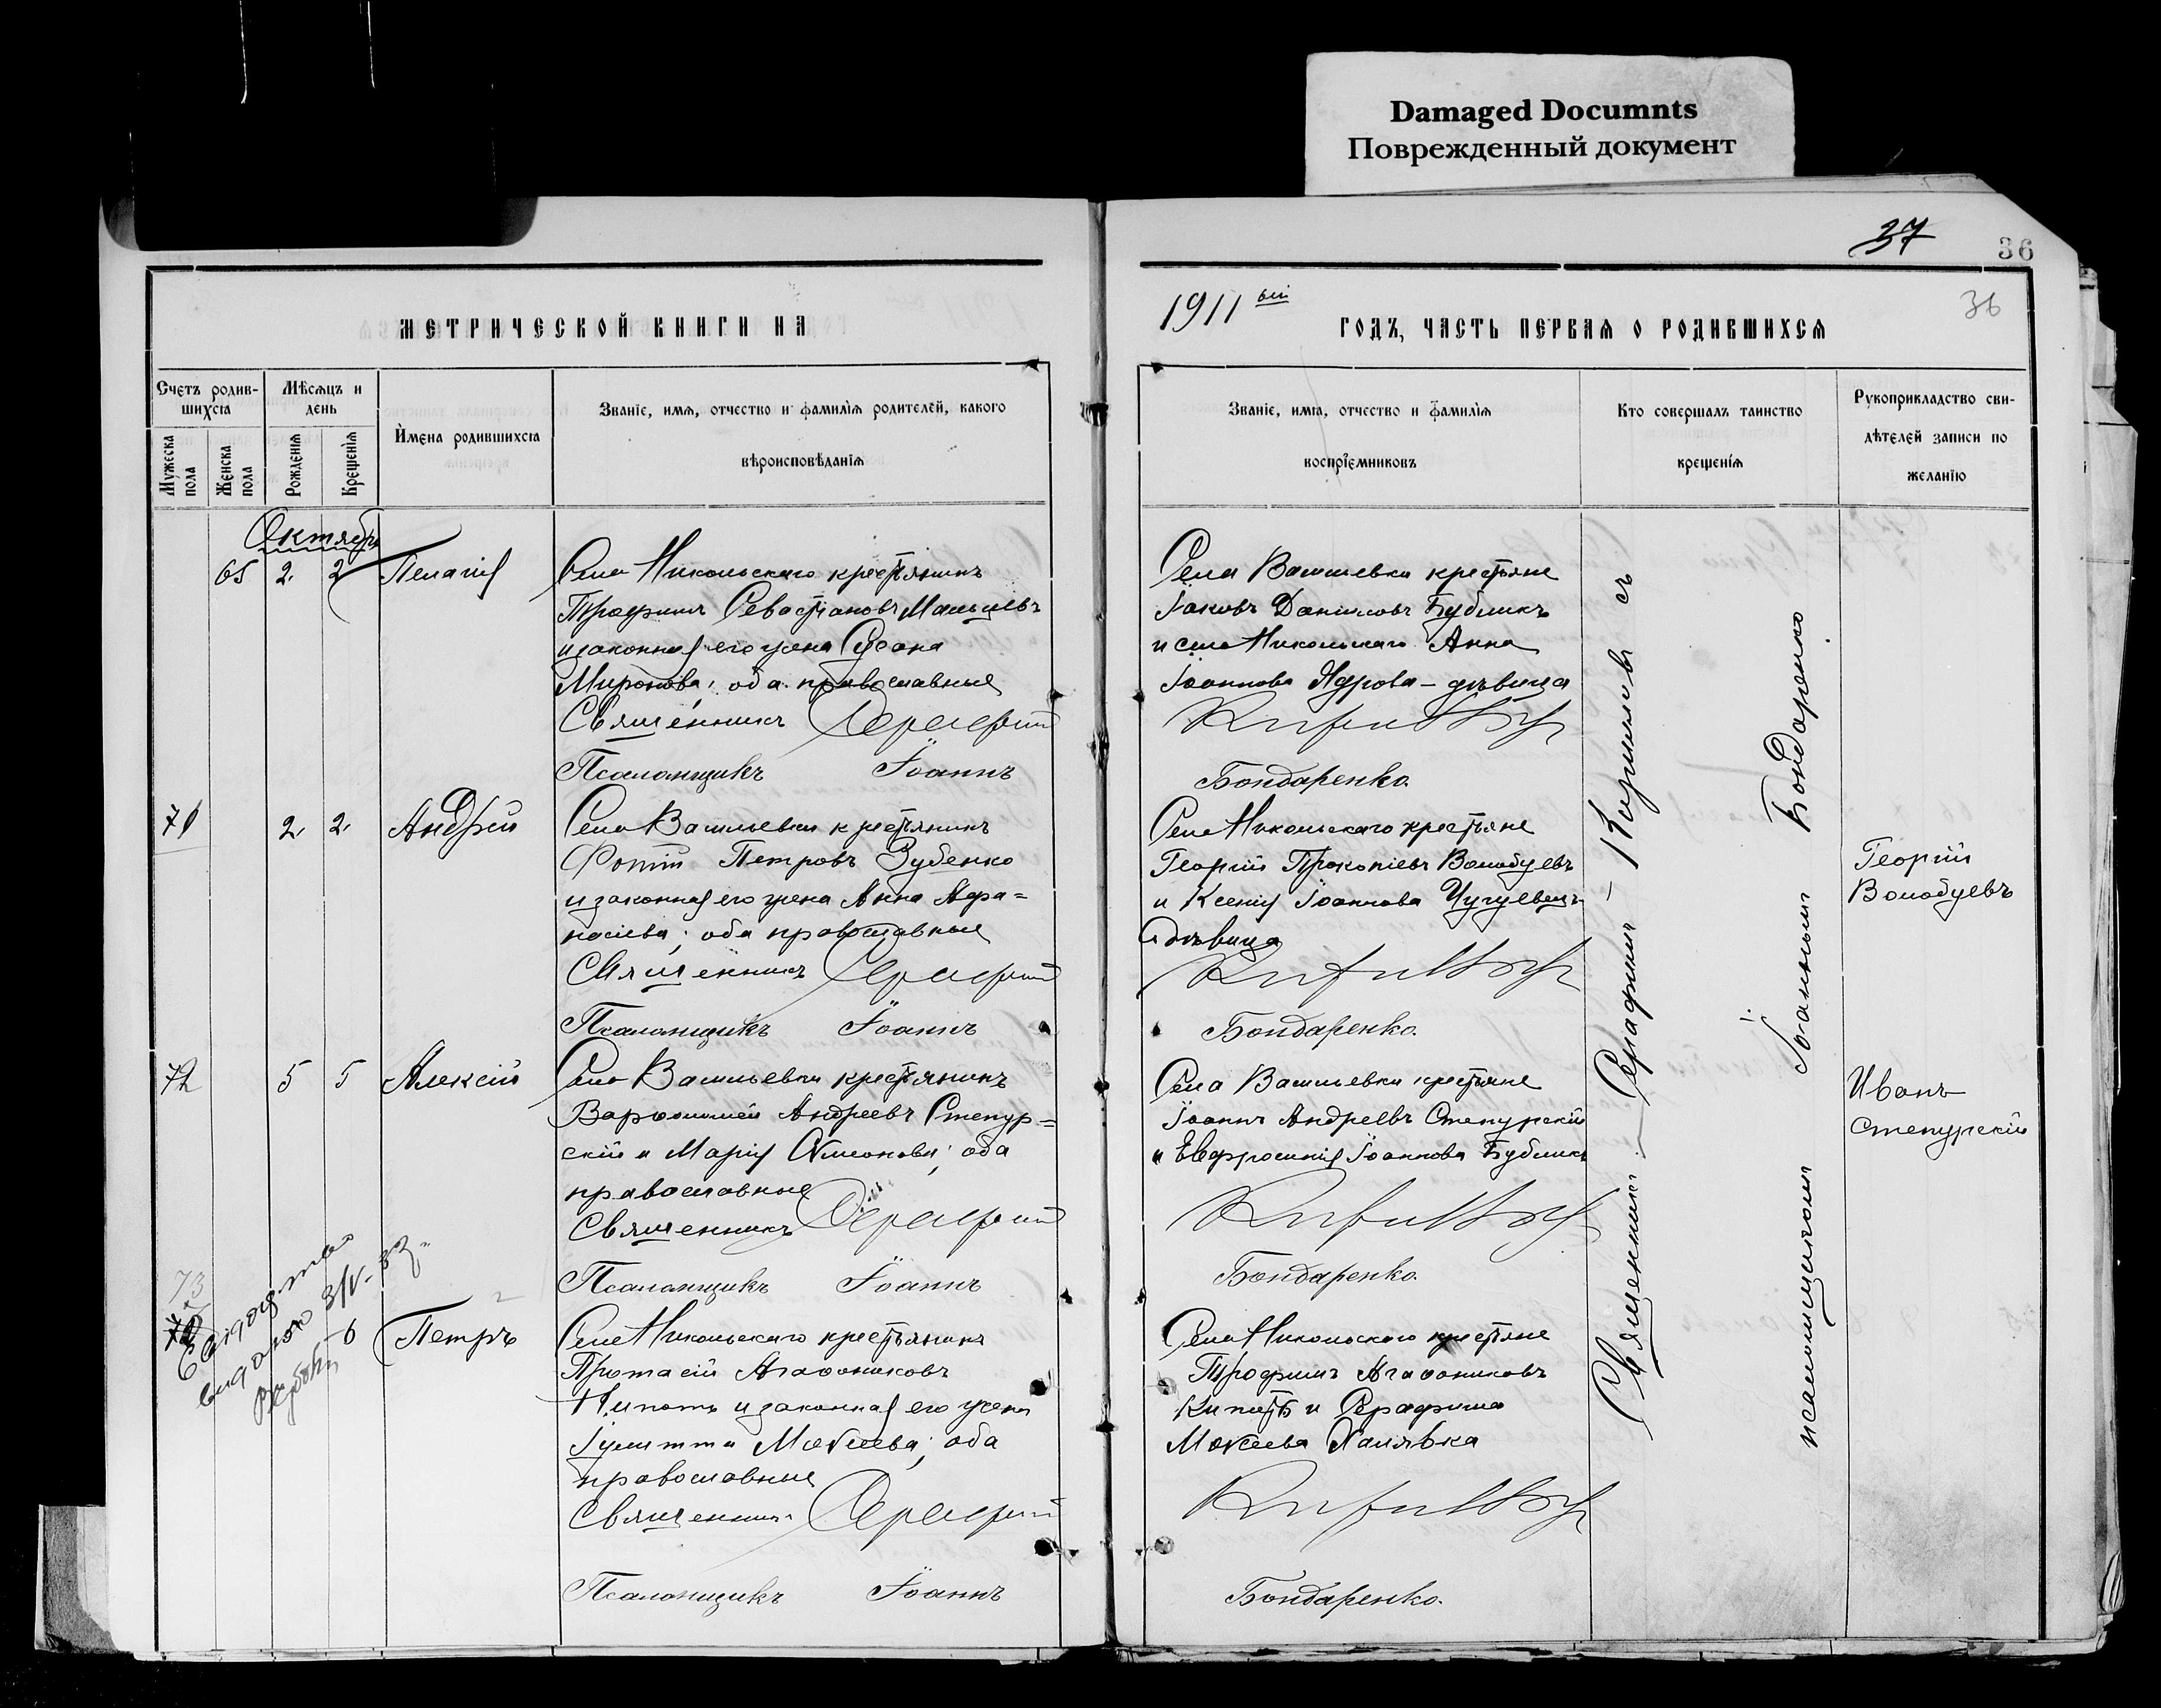 Damaged Documnts
Поврежденный документ
37
36
36
МЕТРИЧЕСКОЙ КНИГИ НА
1911 ый
ГОДЪ, ЧАСТЬ ПЕРВАЯ О РОДИВШИХСЯ
Счетъ родив-
шихся
Мѣсяцъ и
день
Имена родившихся
Званіе, имя, отчество и фамилія родителей, какого
вѣроисповѣданія
Мужеска пола
Женска пола
Рожденія
Крещенія
Званіе, имя, отчество и фамилія
воспріемниковъ
Кто совершалъ таинство
крещенія
Рукоприкладство сви-
дѣтелей записи по
желанію
Октябрь
65 2. 2 Пелагія
Села Никольскаго крестьянинъ
Трофимъ Севастіановъ Мальцевъ
и законная его жена Сусана
Миронова; оба православные
Священникъ Серафимъ
Псаломщикъ Іоаннъ
Села Васильевки крестьяне
Іаковъ Даниловъ Бубликъ
и села Никольскаго Анна
Іоаннова Ядрова – дѣвица
Бондаренко.
71 2. 2. Андрей
Села Васильевки крестьянинъ
Фотій Петровъ Зубенко
и законная его жена Анна Афа=
насіева; оба православные
Священникъ Серафимъ
Псаломщикъ Іоаннъ
Села Никольскаго крестьяне
Георгій Прокопіевъ Волобуевъ
и Ксенія Іоаннова Чугуевецъ
дѣвица
Бондаренко.
Георгій
Волобуевъ
72 5 5 Алексій
Села Васильевки крестьянинъ
Варфоломей Андреевъ Степур=
скій и Марія Симонова; оба
православные
Священникъ Серафимъ
Псаломщикъ Іоаннъ
Села Васильевки крестьяне
Іоаннъ Андреевъ Степурскій
и Евфросинія Іоаннова Бубликъ
Бондаренко.
Иванъ
Степурскій
73
6 Петръ
Села Никольскаго крестьянинъ
Протасій Агафониковъ
Кипоть и законная его жена
Іулитта Моѵсеева; оба
православные
Священникъ Серафимъ
Псаломщикъ Іоаннъ
Села Никольскаго крестьяне
Трофимъ Агафониковъ
Кипоть и Серафима
Моѵсеева Халявка
Бондаренко.
Священникъ – Серафимъ – Кирилловъ съ
псаломщикомъ Іоанномъ Бондаренко.